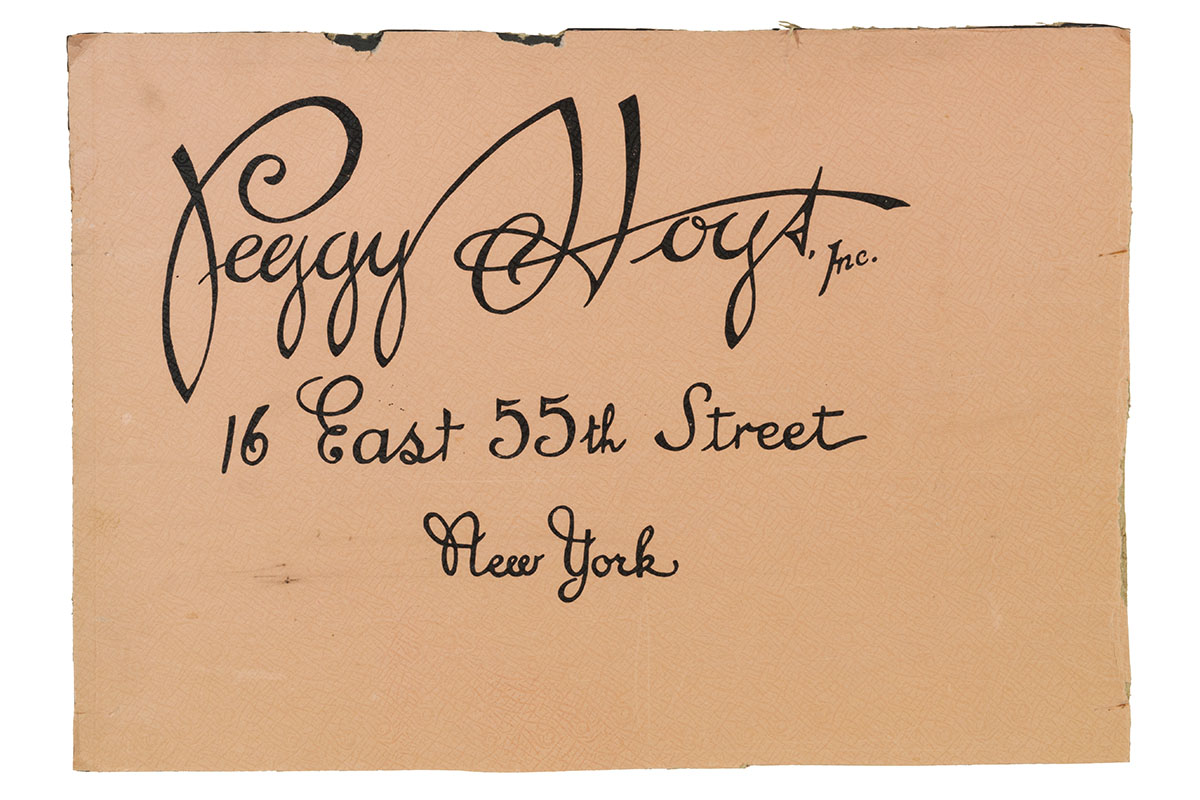 Peggy Hoyt, Inc.
16 East 55th Street
New York